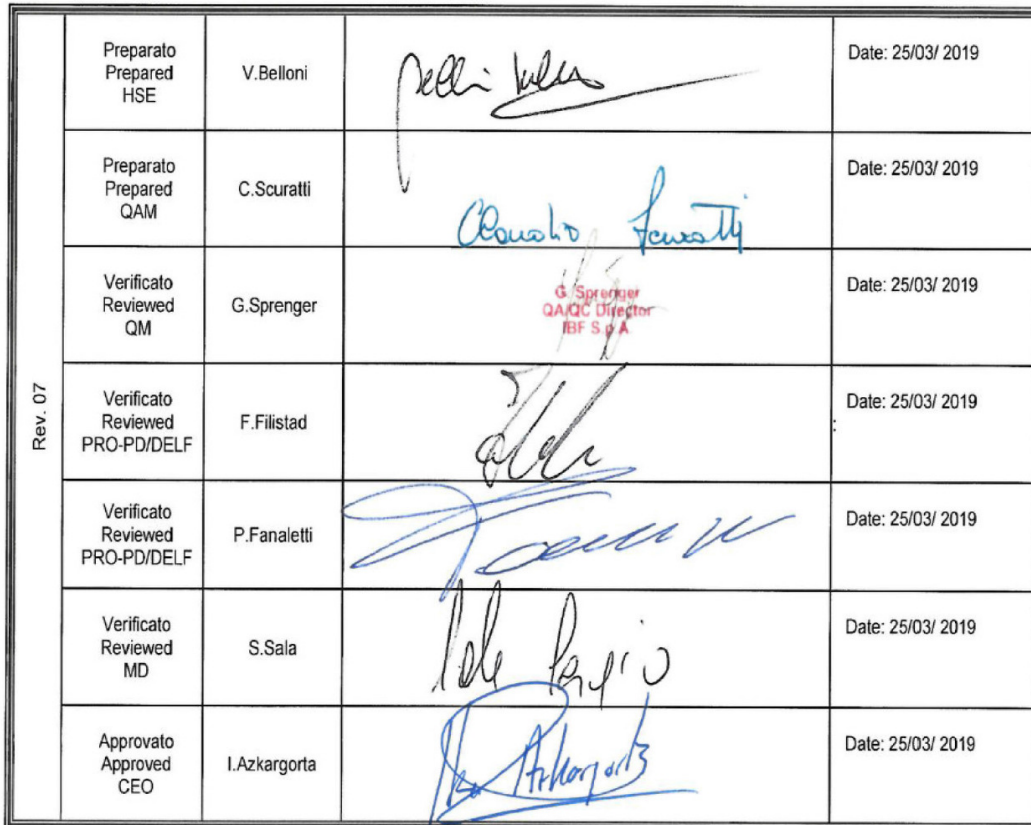 Rev. 07
Preparato
Prepared
HSE
V.Belloni
Date: 25/03/ 2019
Preparato
Prepared
QAM
C.Scuratti
Claudio Scuratti
Date: 25/03/ 2019
Verificato
Reviewed
QM
G.Sprenger
G. Sprenger
QA/QC Director
IBF S.p.A
Date: 25/03/ 2019
Verificato
Reviewed
PRO-PD/DELF
F.Filistad
Date: 25/03/ 2019
Verificato
Reviewed
PRO-PD/DELF
P.Fanaletti
Date: 25/03/ 2019
Verificato
Reviewed
MD
S.Sala
Sala Sergio
Date: 25/03/ 2019
Approvato
Approved
CEO
I.Azkargorta
Azkargorta
Date: 25/03/ 2019